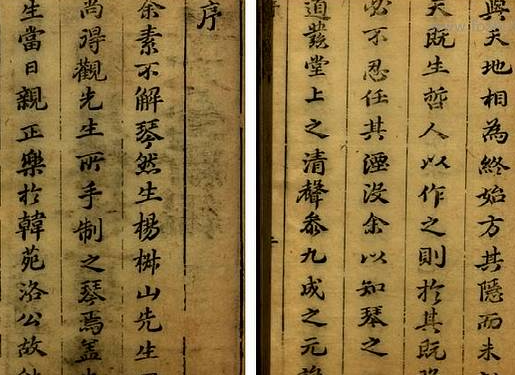 與天地相為終始方其隱而未
天既生哲人以作之則於其既
必不忍任其湮沒余以知琴之
道發堂上之清聲叅九成之元
序
余素不解琴然生楊椒山先生
尚得觀先生所手制之琴焉蓋
生當日親正樂於韓苑洛公故